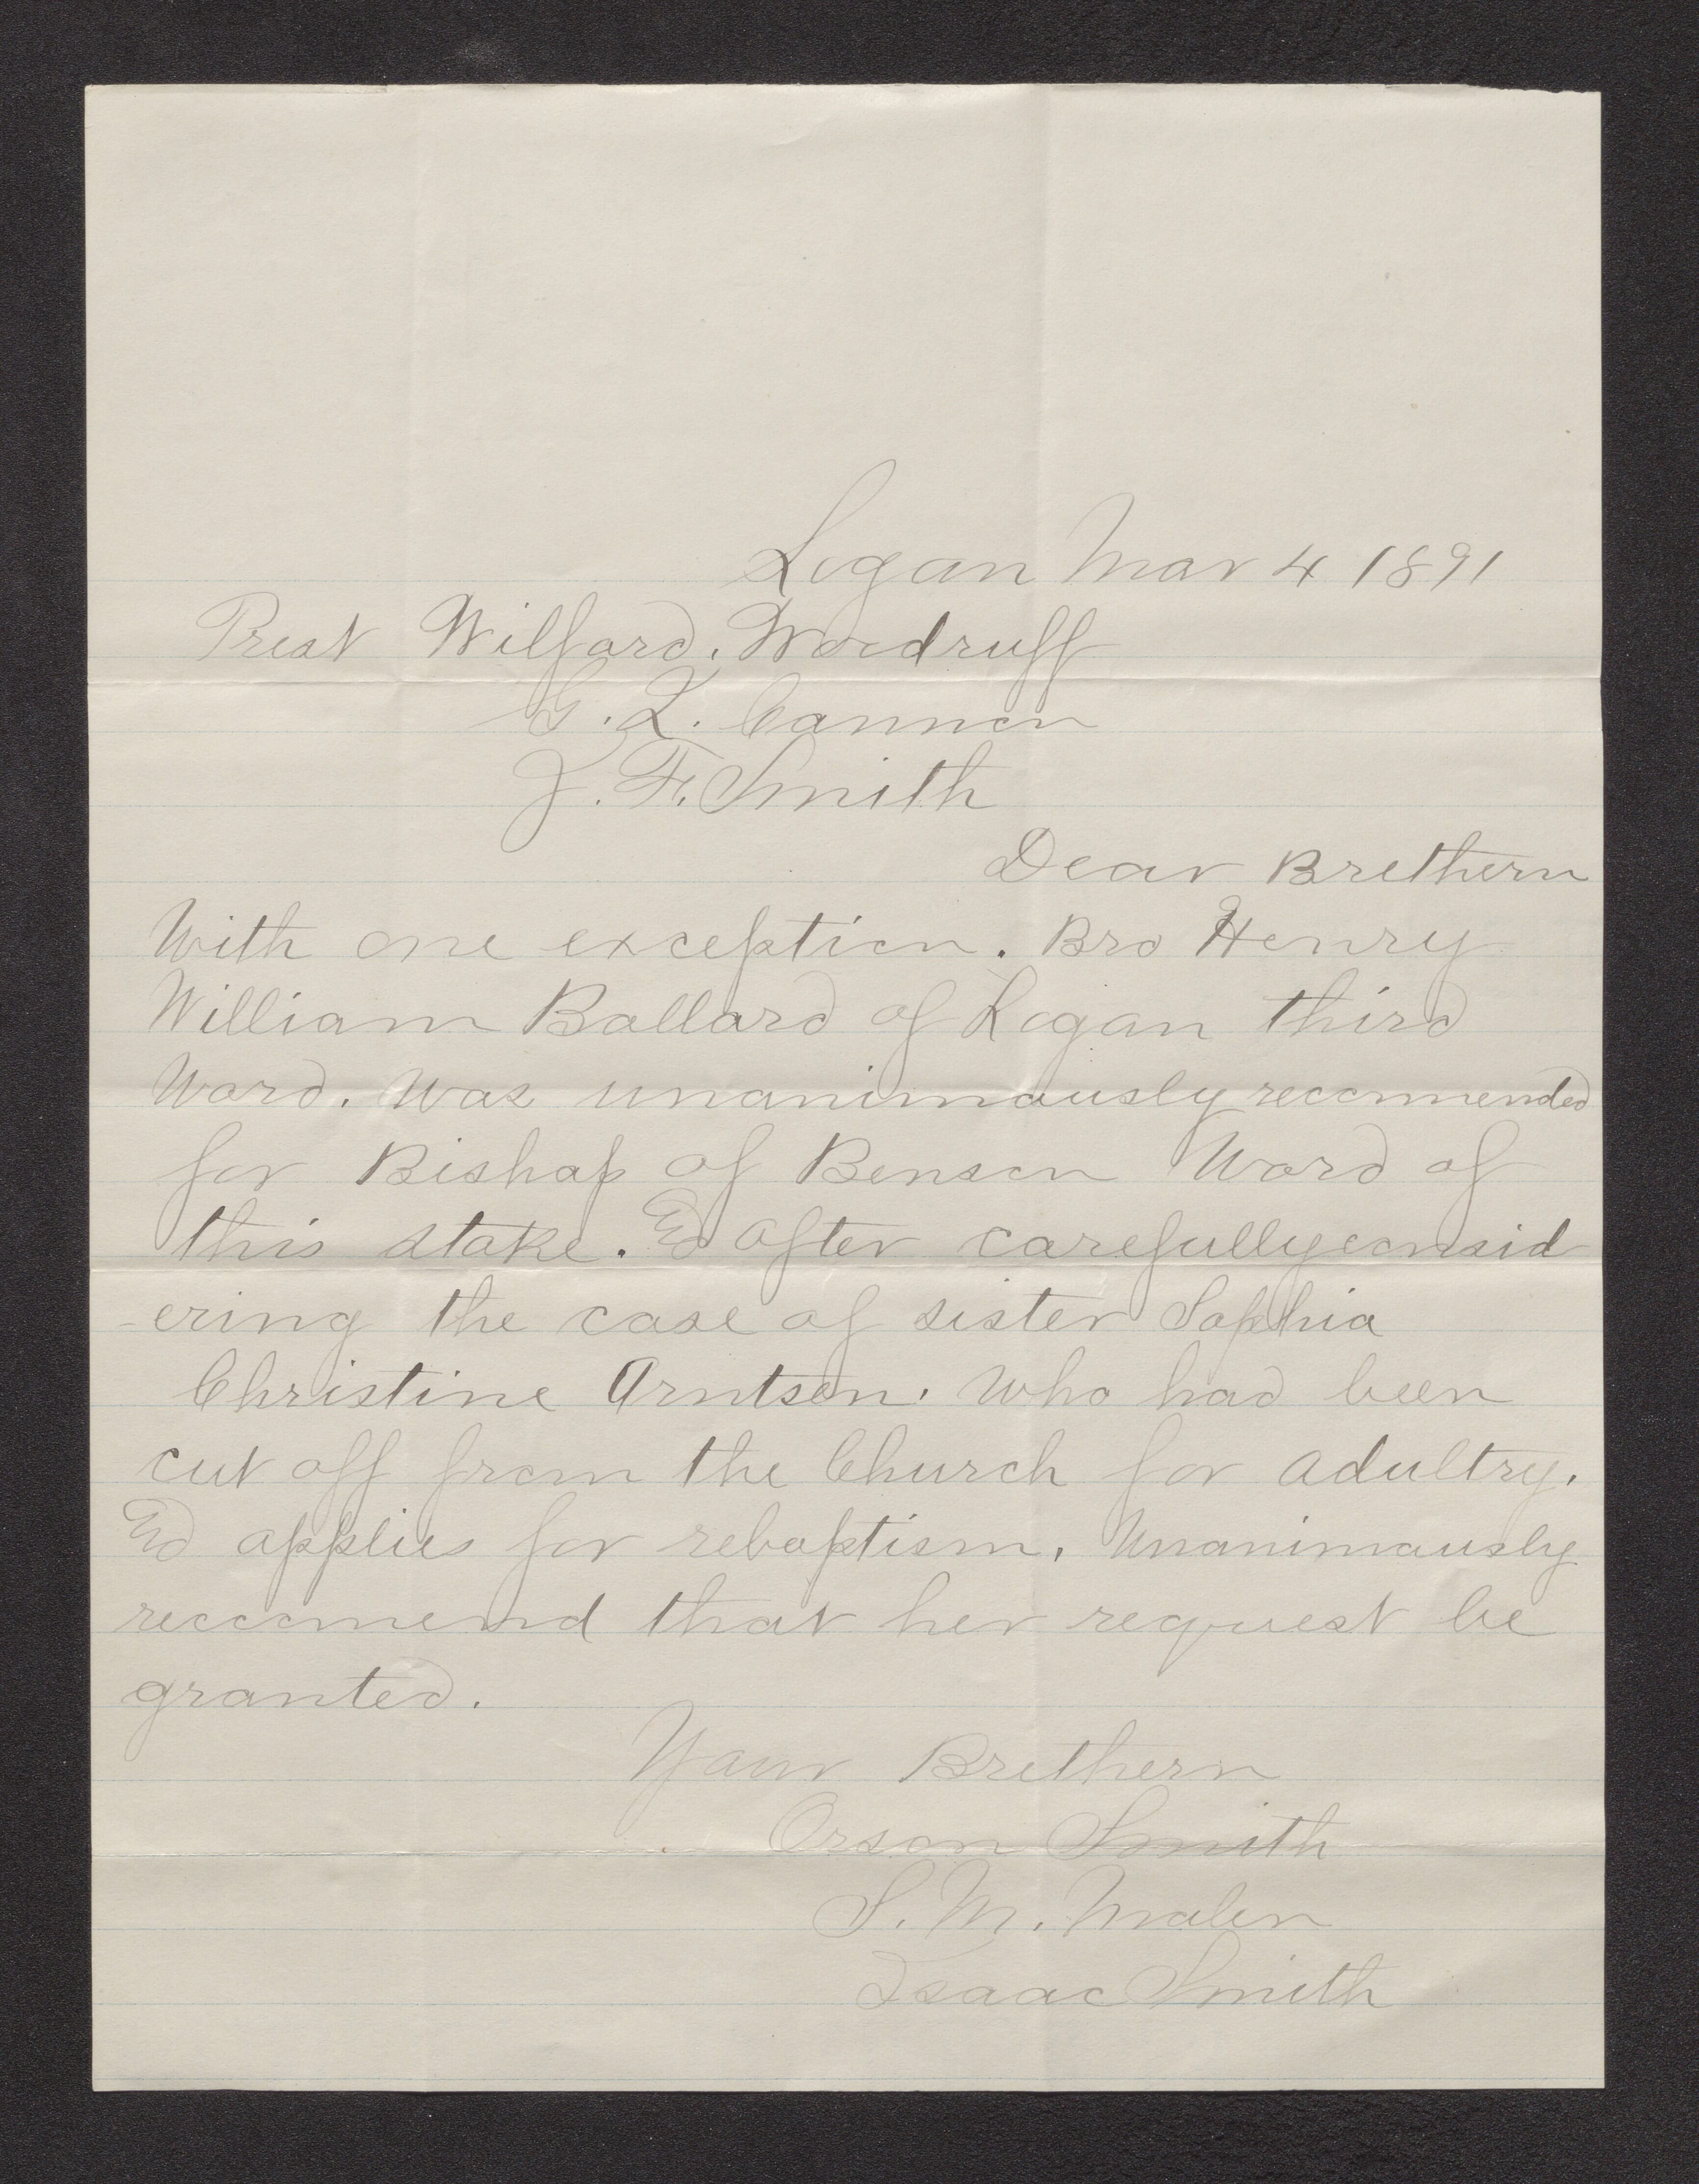 Logan Mar 4 1891
Prest Wilford. Woodruff
G. Q. Cannon
J. F. Smith
Dear Brethern
With one exception. Bro Henry
William Ballard of Logan third
Ward. Was unanimously recommended
for Bishop of Benson Ward of
this stake. & after carefully consid
-ering the case of sister Sophia
Christine Arntsen. Who had been
cut off from the Church for adultry.
& applies for rebaptism. Unanimously
reccomend that her request be
granted.
Your Brethern
Orson Smith
S. M. Molen
Isaac Smith